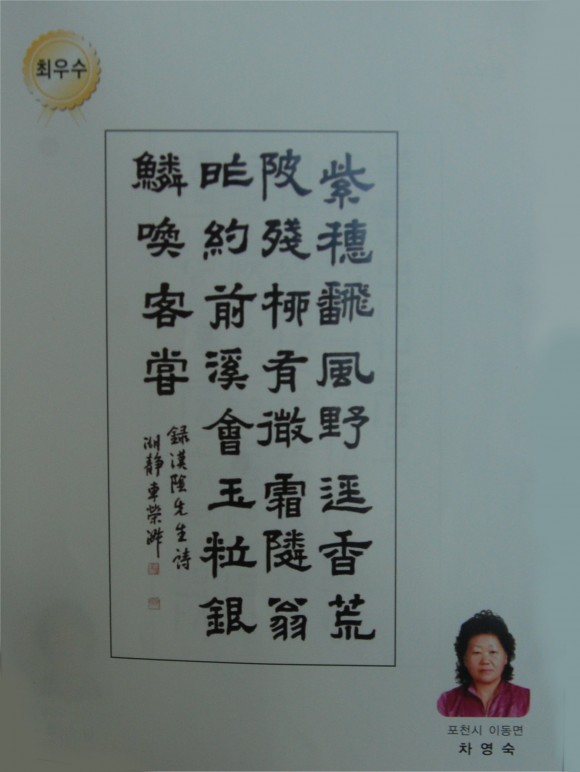 최우수
紫穗飜風野逕香荒
陂殘栁有微霜隣翁
昨約前溪會玉粒銀
鱗喚客甞
録漢陰先生詩
湖静車榮淑
포천시 이동면
차영숙